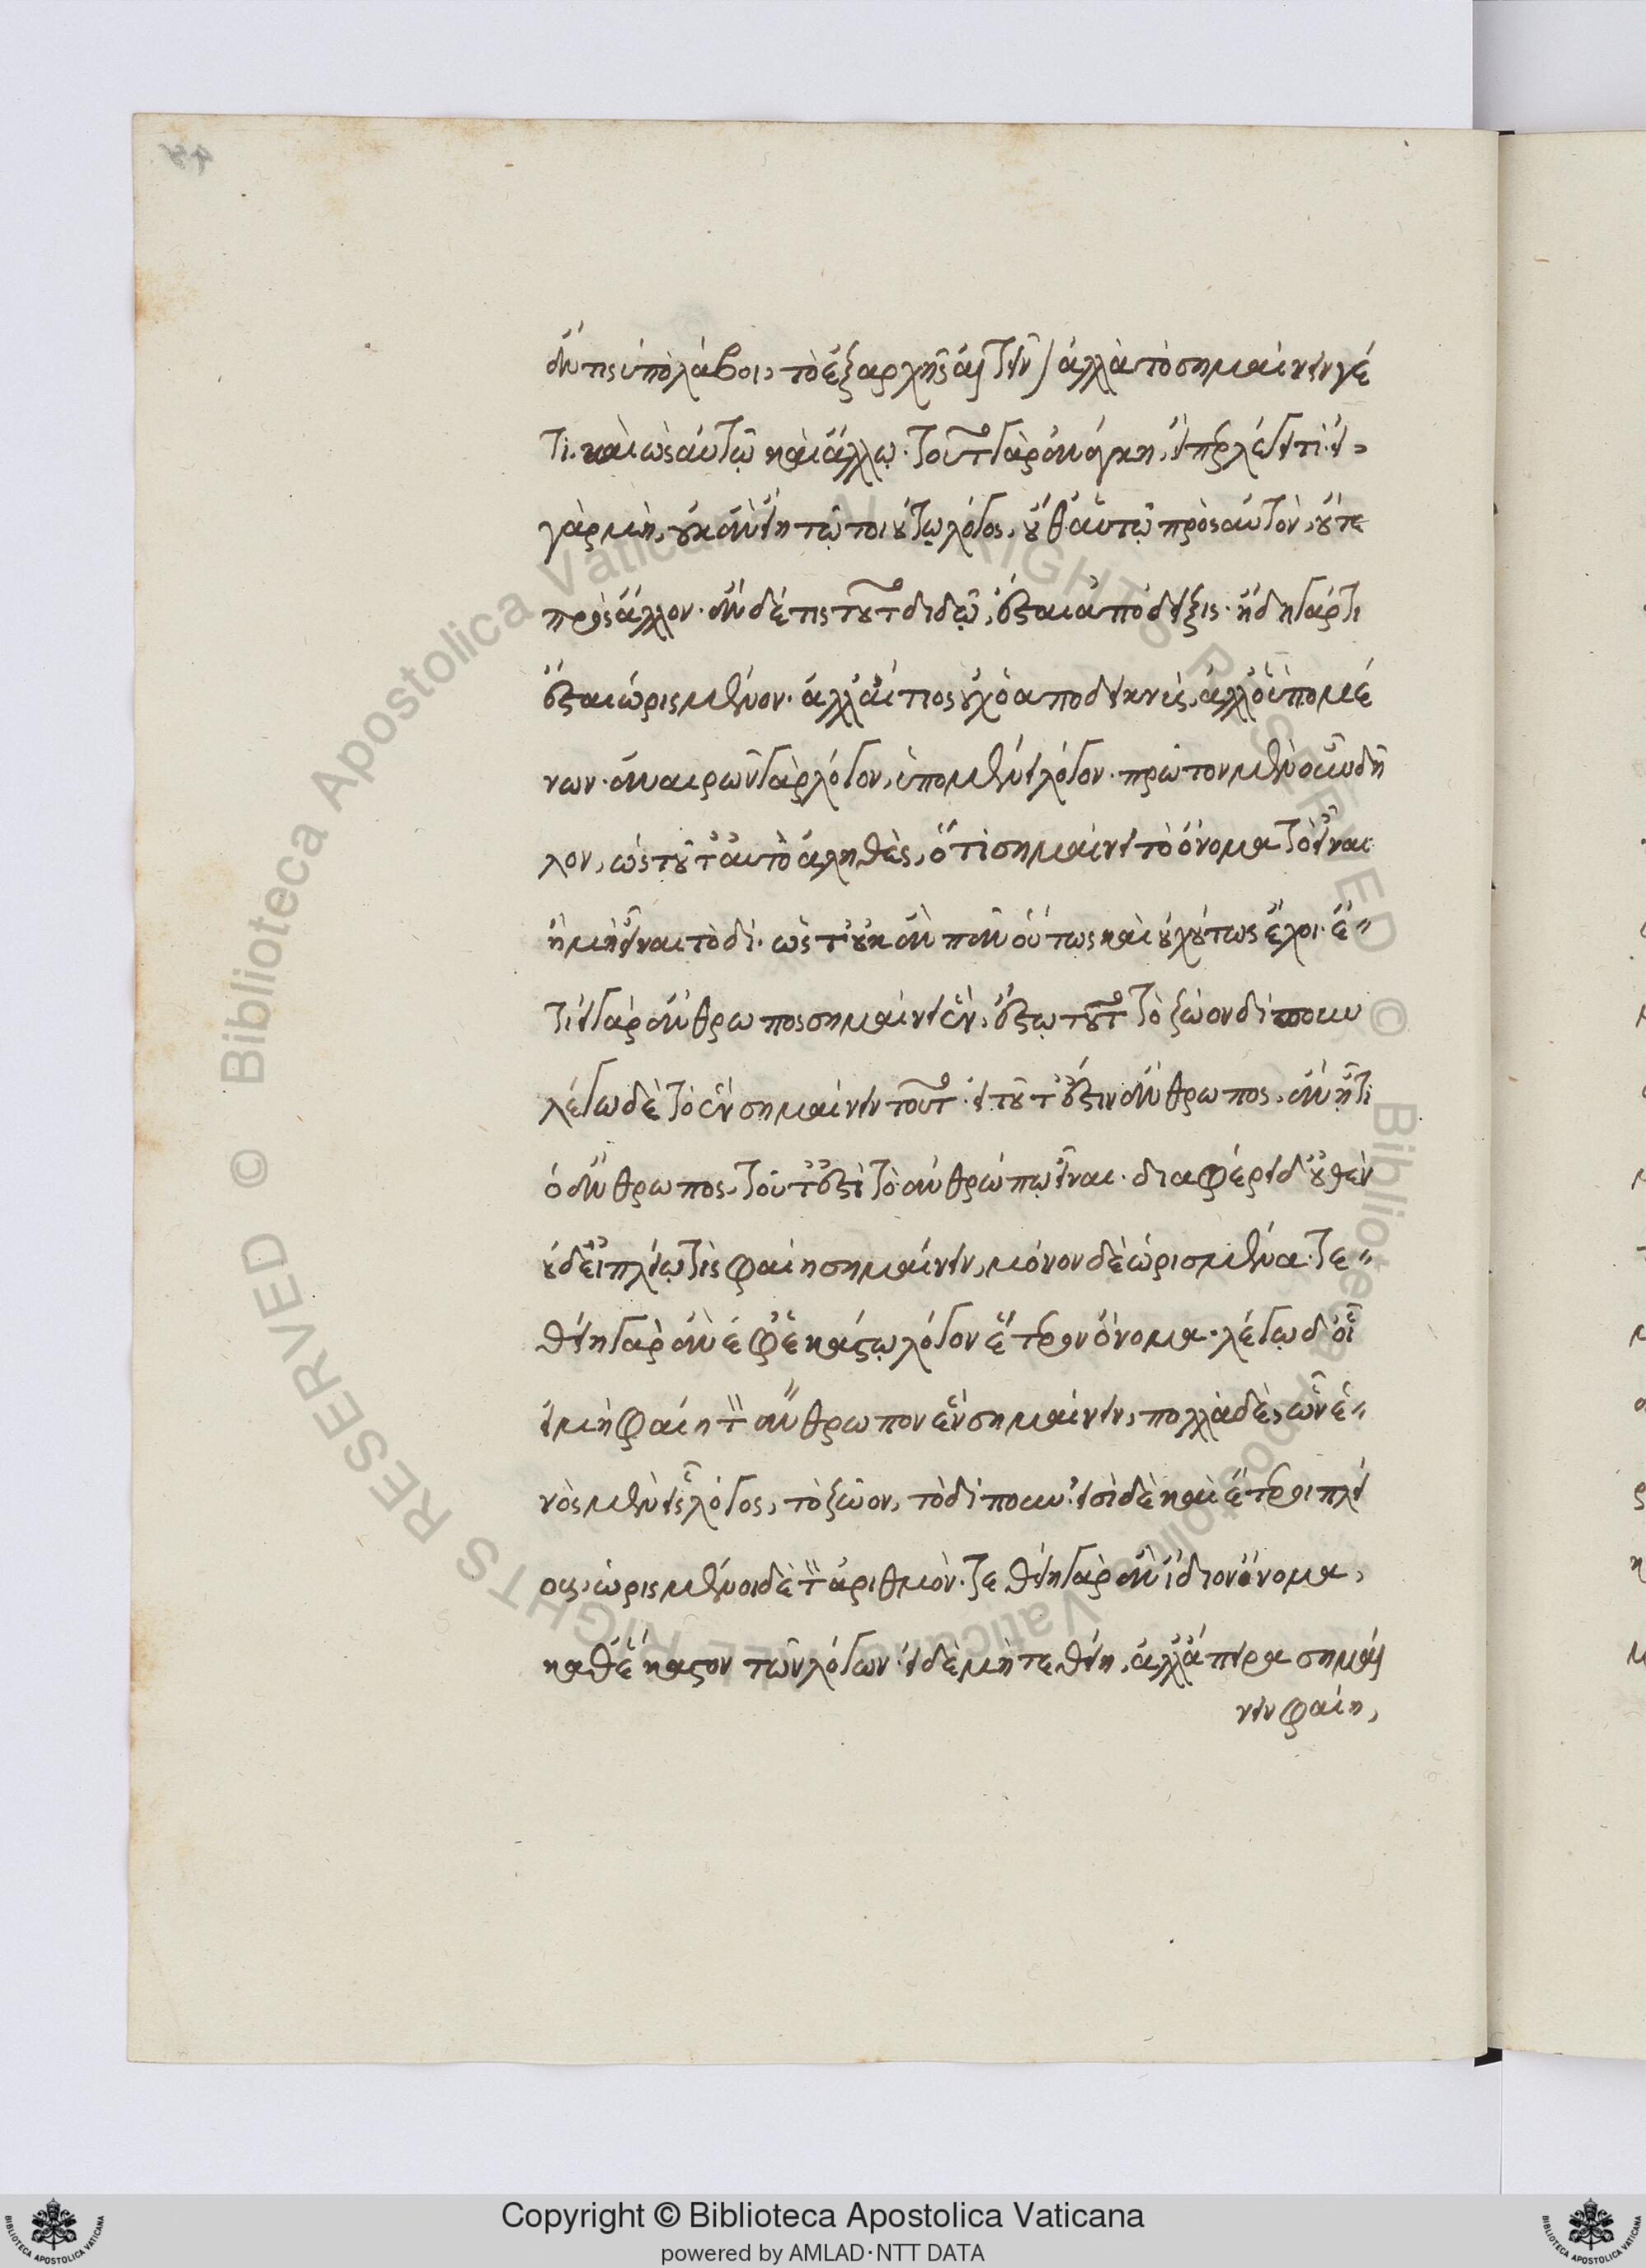 ἄν τις ὑπολάβοι, τὸ ἐξ ἀρχῆς αἰτεῖν) ἀλλὰ τὸ σημαίνειν γέ
τι καὶ ὡς αὑτῷ καὶ ἄλλῳ. τοῦτο γὰρ ἀνάγκη, εἴπερ λέγει τι. εἰ
γὰρ μὴ, οὐκ ἂν εἴη τῷ τοιούτῳ λόγος, οὔθ' αὑτῷ πρὸς αὑτὸν, οὔτε
πρὸς ἄλλον. ἂν δέ τις τοῦτο διδῷ, ἔσται ἀπόδειξις. ἤδη γάρ τι
ἔσται ὡρισμένον. ἀλλ' αἴτιος οὐχ ὁ ἀποδεικνὺς, ἀλλ' ὁ ὑπομέ
νων. ἀναιρῶν γὰρ λόγον, ὑπομένει λόγον. πρῶτον μὲν οὖν δῆ
λον, ὡς τοῦτ' αὐτὸ ἀληθὲς, ὅτι σημαίνει τὸ ὄνομα τὸ εἶναι
ἢ μὴ εἶναι τοδί. ὥς τ' οὐκ ἂν πᾶν οὕτως καὶ οὐχ οὕτως ἔχοι. ἔ
τι εἰ γὰρ ἄνθρωπος σημαίνει ἓν, ἔστω τοῦτο τὸ ζῷον δίπουν
λέγω δὲ τὸ ἓν σημαίνειν τοῦτο. εἰ τοῦτ' ἔστιν ἄνθρωπος, ἂν ᾖ τι
ὁ ἄνθρωπος, τοῦτ' ἔσται τὸ ἀνθρώπῳ εἶναι. διαφέρει δ' οὐθὲν
οὐδ' εἰ πλείω τὶς φαίη σημαίνειν, μόνον δὲ ὡρισμένα. τε
θείη γὰρ ἂν ἐφ' ἑκάστῳ λόγον ἕτερον ὄνομα. λέγω δ' οἷ
εἰ μὴ φαίη τὸν ἄνθρωπον ἓν σημαίνειν, πολλὰ δὲ, ὧν ἑ
νὸς μὲν εἷς λόγος, τὸ ζῷον, τὸ δίπουν. εἰσὶ δὲ καὶ ἕτεροι πλεί
ους, ὡρισμένοι δὲ τὸν ἀριθμόν. τεθείη γὰρ ἂν ἴδιον ὄνομα,
καθ' ἕκαστον τῶν λόγων. εἰ δὲ μὴ τεθείη, ἀλλ' ἄπειρα σημαί
νειν φαίη,